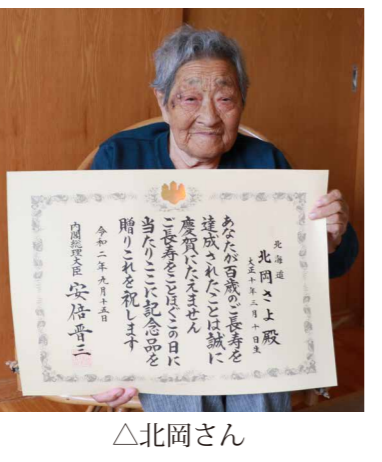 北海道
北岡さよ殿
大正十年三月十日生
あなたが百歳のご長寿を
達成されたことは誠に
慶賀にたえません
ご長寿をことほぐこの日に
当たりここに記念品を
贈りこれを祝します
令和二年九月十五日
内閣総理大臣 安倍晋三
△北岡さん